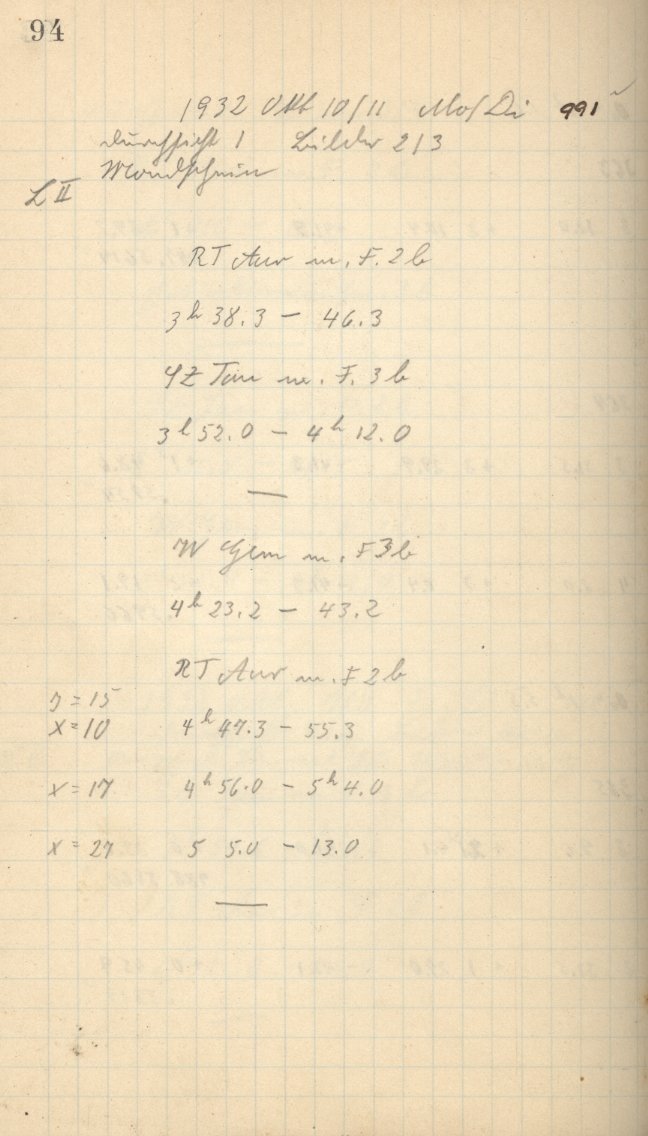 94
1932 Okt 10/11 Mo/Di 991
Durchsicht 1 Bilder 2/3
Mondschein
L II
RT Aur m. F. 2 b
3h 38.3 – 46.3
YZ Tau m. F. 3 b
3h 52.0 – 4h 12.0
W Gem m. F 3 b
4h 23.2 – 43.2
RT Aur m. F 2 b
y = 15
x = 10 4h 47.3 – 55.3
x = 17 4h 56.0 – 5h 4.0
x = 27 5 5.0 – 13.0